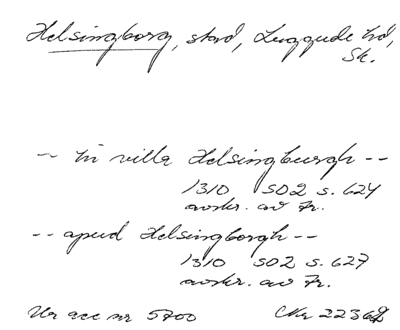 Helsingborg, stad, Luggude hd,
Sk.
-- in villa Helsingburgh --
1310 SD2 s. 624
avskr. av Fr.
-- apud Helsingborgh --
1310 SD2 s. 627
avskr. av Fr.
Ur acc nr 5700